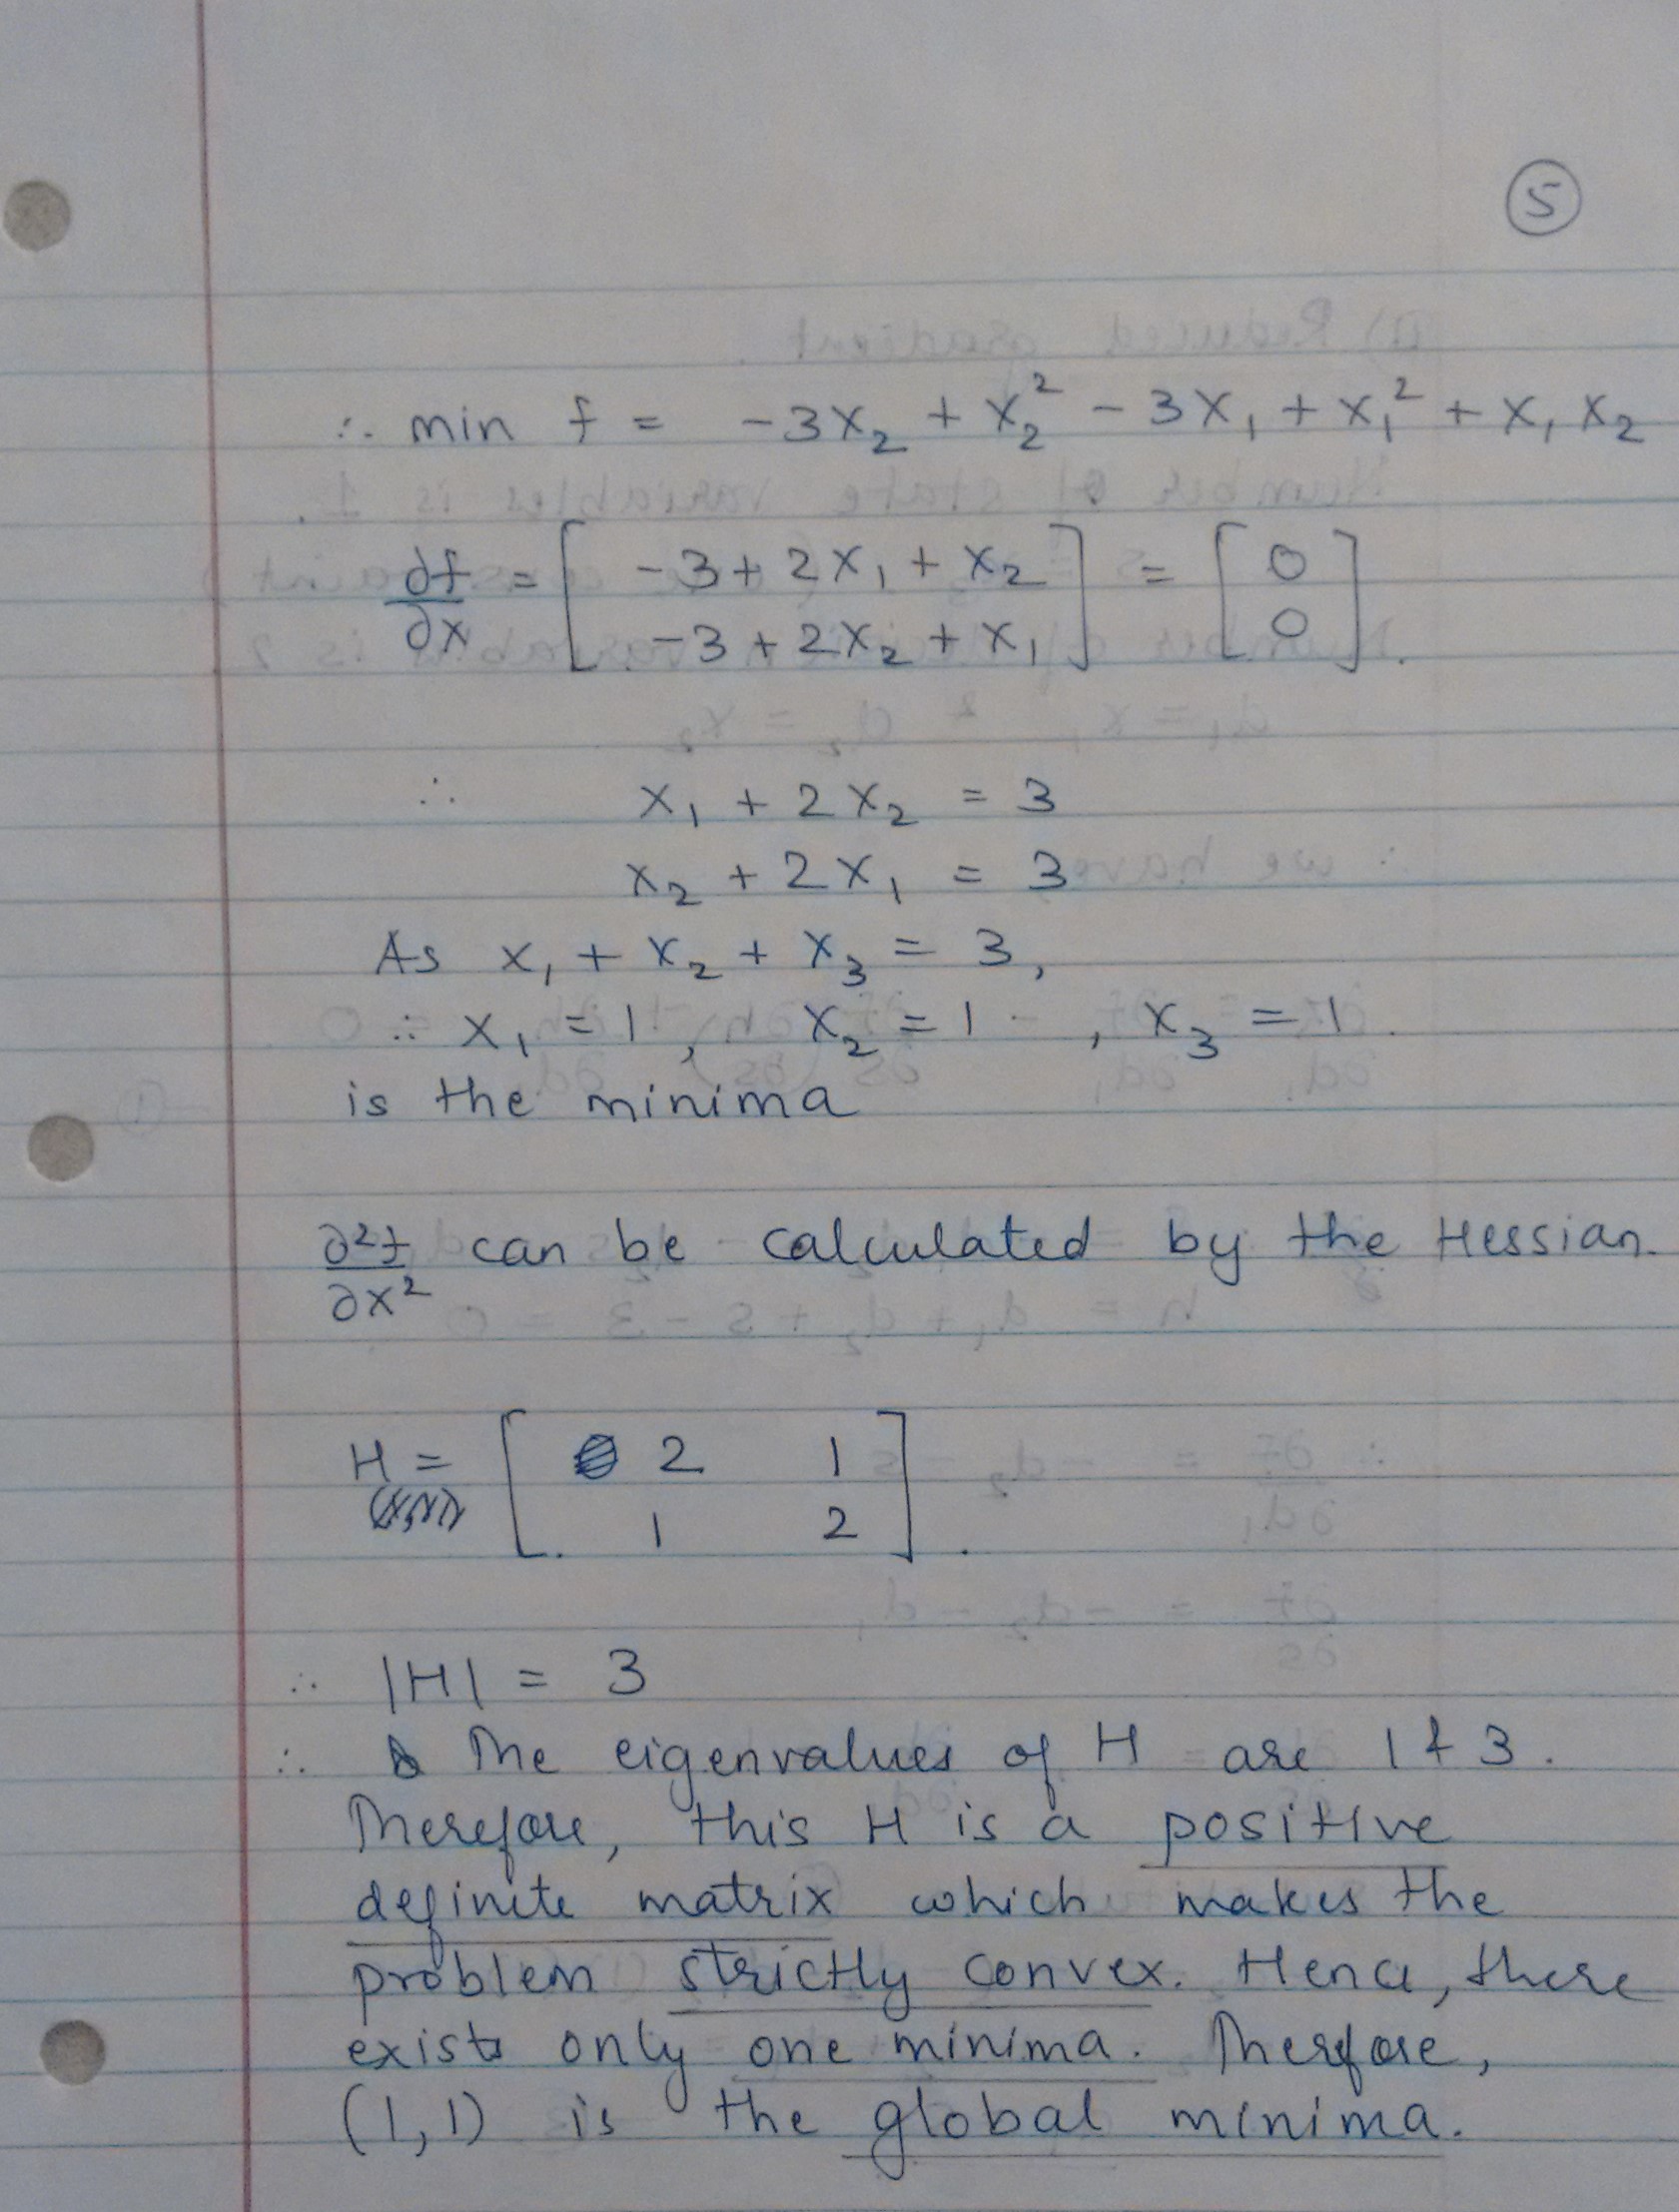 5
∴ min f = -3x₂ + x₂² - 3x₁ + x₁² + x₁ x₂
∂f/∂x = [ -3 + 2x₁ + x₂ ; -3 + 2x₂ + x₁ ] = [ 0 ; 0 ].
∴ x₁ + 2x₂ = 3
x₂ + 2x₁ = 3
As x₁ + x₂ + x₃ = 3,
∴ x₁ = 1, x₂ = 1 , x₃ = 1.
is the minima
∂²f/∂x² can be calculated by the Hessian.
H = [ 2 1 ; 1 2 ].
∴ |H| = 3
∴ The eigenvalues of H are 1 & 3.
Therefore, this H is a positive
definite matrix which makes the
problem strictly convex. Hence, there
exists only one minima. Therefore,
(1,1) is the global minima.